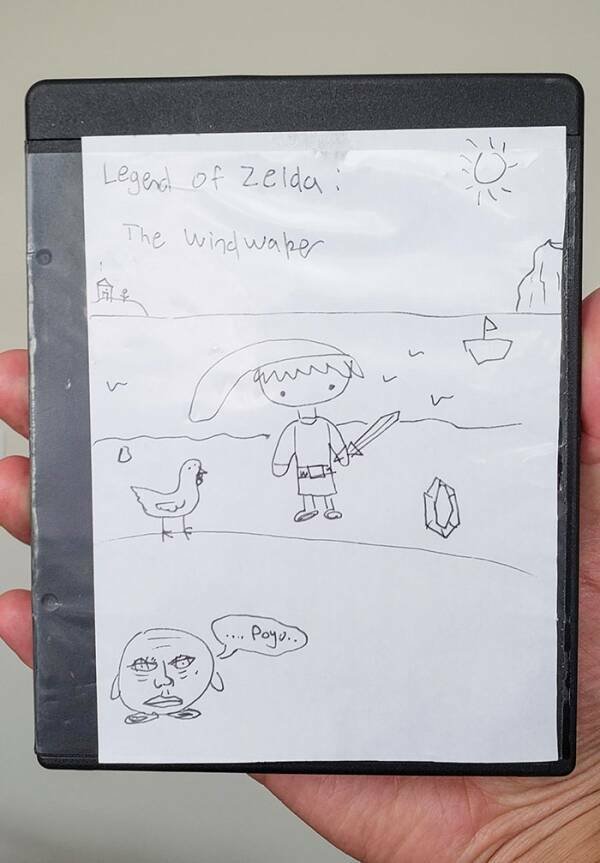 Legend of Zelda:
The Windwaker
.... Poyo..